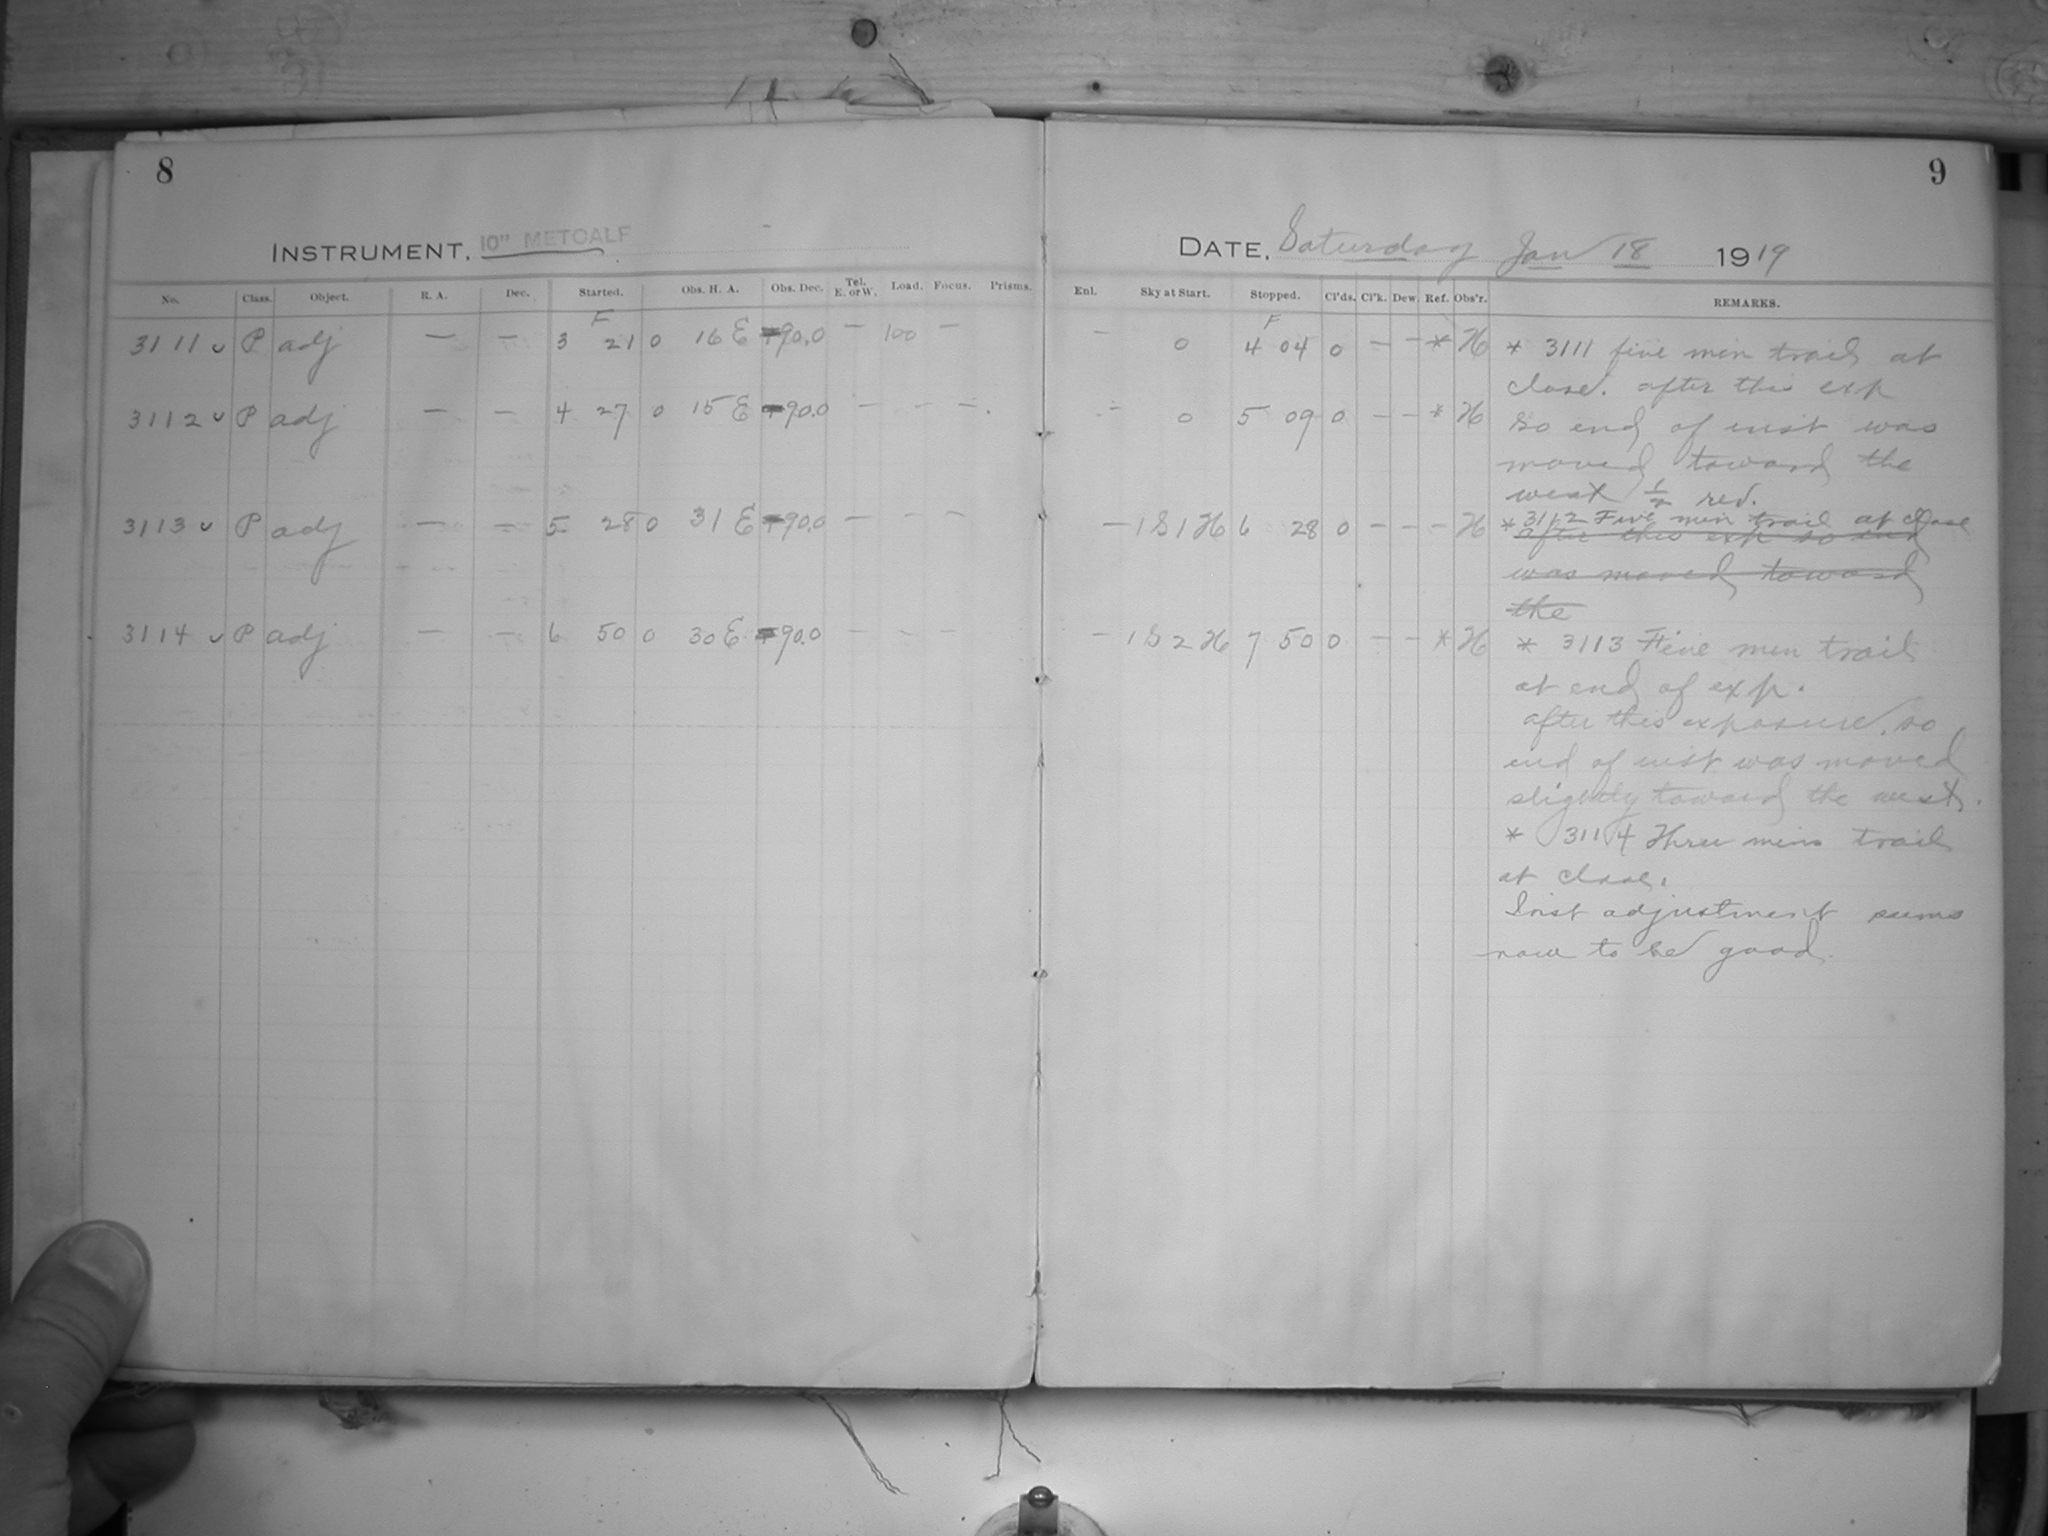 8
INSTRUMENT, 10" METCALF
No. Class. Object. R. A. Dec. Started. Obs. H. A. Obs. Dec. Tel. E. or W. Load. Focus. Prisms.
F
3111 v P adj — — 3 21 0 16 E +90.0 — 100 —
3112 v P adj — — 4 27 0 15 E +90.0 — — —
3113 v P adj — — 5 28 0 31 E +90.0 — — —
3114 v P adj — — 6 50 0 30 E +90.0 — — —
9
DATE, Saturday Jan 18 1919
Enl. Sky at Start. Stopped. Cl'ds. Cl'k. Dew. Ref. Obs'r. REMARKS.
F
— 0 4 04 0 — — * H
— 0 5 09 0 — — * H
— 1 S 1 H 6 28 0 — — — H
— 1 S 2 H 7 50 0 — — * H
* 3111 five min trail at
close. after this exp
So end of inst was
moved toward the
west 1/2 rev.
* 3112 Five min trail at close
after this exp so end
was moved toward
the
* 3113 Five min trail
at end of exp.
after this exposure, so
end of inst was moved
slightly toward the west.
* 3114 Three min trail
at close.
Inst adjustment seems
now to be good.